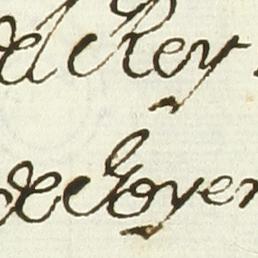 del Rey
de Goyen